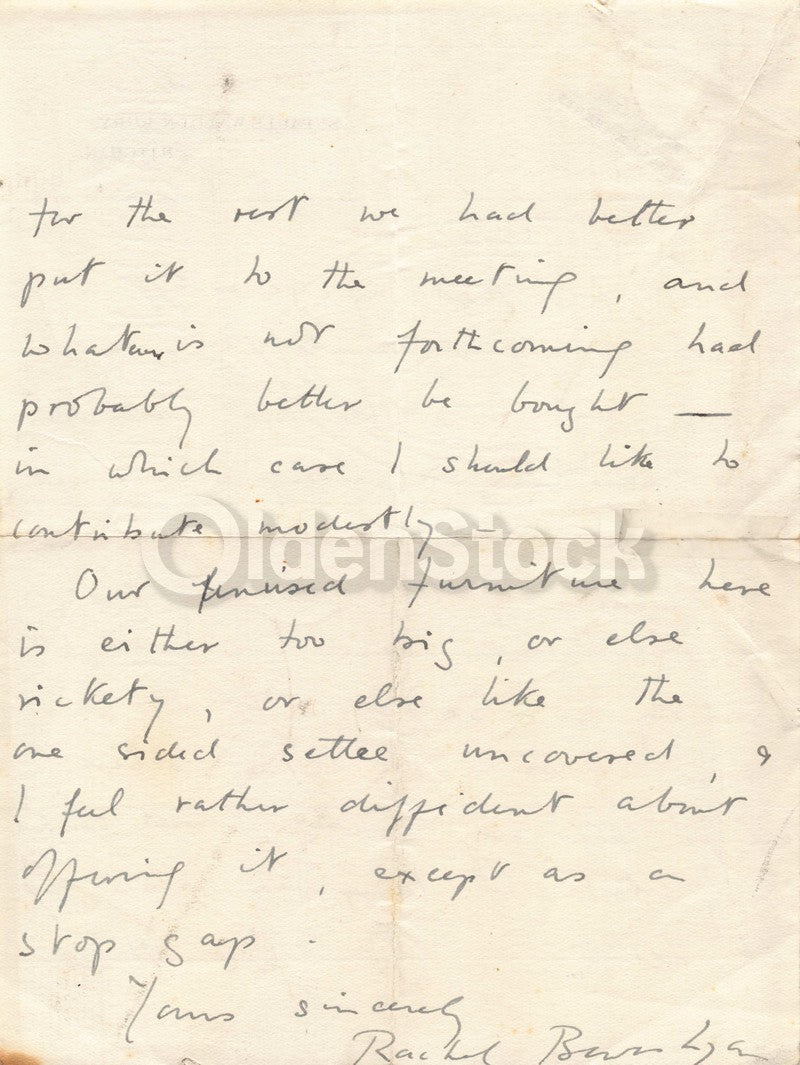 for the rest we had better
put it to the meeting, and
what is not forthcoming had
probably better be bought —
in which case I should like to
contribute modestly –
OldenStock
Our unused furniture here
is either too big, or else
rickety, or else like the
one sided settee uncovered, &
I feel rather diffident about
offering it, except as a
stop gap.
Yours sincerely
Rachel Bowes Lyon